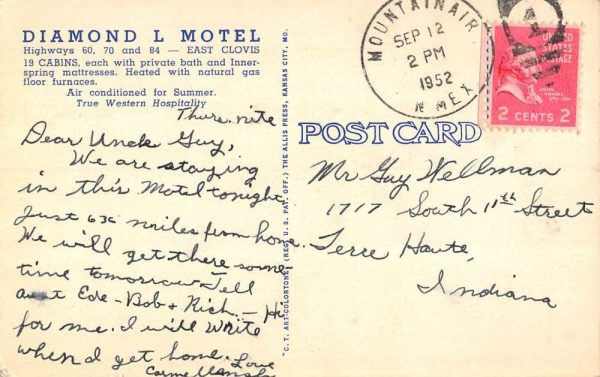 DIAMOND L MOTEL
Highways 60, 70 and 84 — EAST CLOVIS
19 CABINS, each with private bath and Inner-
spring mattresses. Heated with natural gas
floor furnaces.
Air conditioned for Summer.
True Western Hospitality
Thurs. nite
Dear Uncle Guy,
We are staying
in this Motel tonight
just 636 miles from home.
We will get there some
time tomorrow. Tell
aunt - Bob & Rich. - Hi
for me. I will write
when I get home. Love
"C.T. ART-COLORTONE" (REG. U.S. PAT. OFF.) THE ALLIS PRESS, KANSAS CITY, MO.
MOUNTAINAIR
SEP 12
2 PM
1952
N MEX
UNITED STATES
POSTAGE
JOHN
ADAMS
2 CENTS 2
POST CARD
Mr Guy Wellman
1717 South 11th Street
Terre Haute,
Indiana